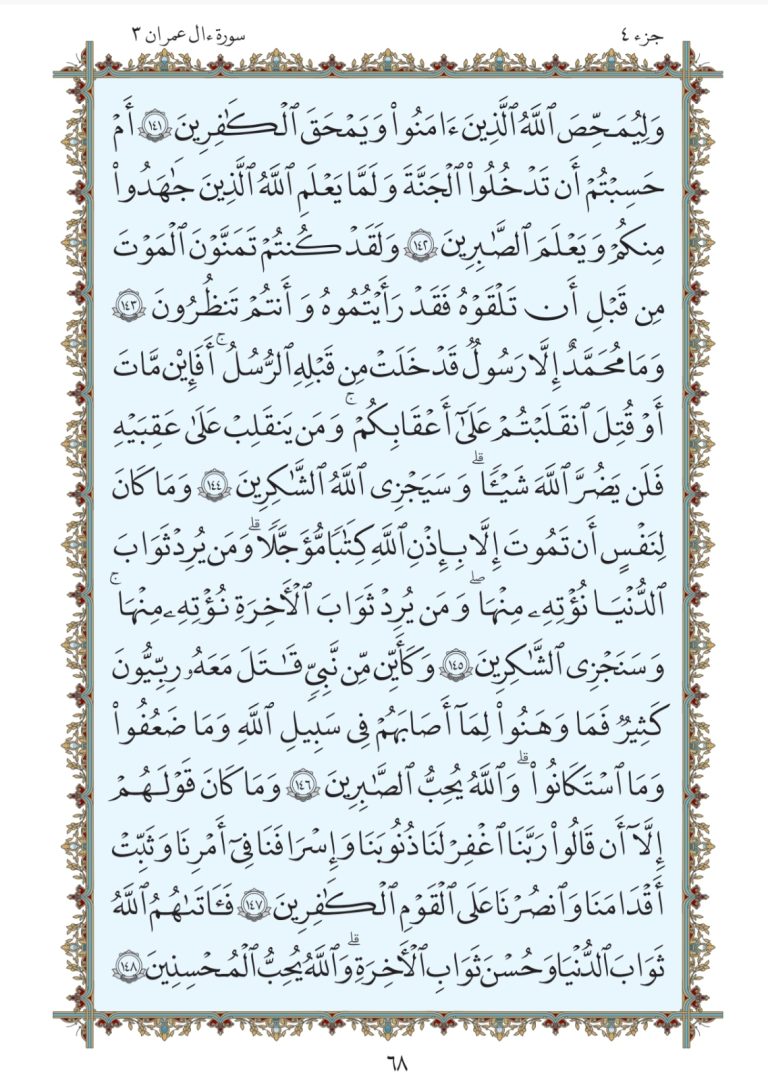 جزء ٤
سورة ءال عمران ٣
وَلِيُمَحِّصَ ٱللَّهُ ٱلَّذِينَ ءَامَنُوا۟ وَيَمْحَقَ ٱلْكَٰفِرِينَ ١٤١ أَمْ
حَسِبْتُمْ أَن تَدْخُلُوا۟ ٱلْجَنَّةَ وَلَمَّا يَعْلَمِ ٱللَّهُ ٱلَّذِينَ جَٰهَدُوا۟
مِنكُمْ وَيَعْلَمَ ٱلصَّٰبِرِينَ ١٤٢ وَلَقَدْ كُنتُمْ تَمَنَّوْنَ ٱلْمَوْتَ
مِن قَبْلِ أَن تَلْقَوْهُ فَقَدْ رَأَيْتُمُوهُ وَأَنتُمْ تَنظُرُونَ ١٤٣
وَمَا مُحَمَّدٌ إِلَّا رَسُولٌ قَدْ خَلَتْ مِن قَبْلِهِ ٱلرُّسُلُ ۚ أَفَإِي۟ن مَّاتَ
أَوْ قُتِلَ ٱنقَلَبْتُمْ عَلَىٰٓ أَعْقَٰبِكُمْ ۚ وَمَن يَنقَلِبْ عَلَىٰ عَقِبَيْهِ
فَلَن يَضُرَّ ٱللَّهَ شَيْـًٔا ۗ وَسَيَجْزِى ٱللَّهُ ٱلشَّٰكِرِينَ ١٤٤ وَمَا كَانَ
لِنَفْسٍ أَن تَمُوتَ إِلَّا بِإِذْنِ ٱللَّهِ كِتَٰبًا مُّؤَجَّلًا ۗ وَمَن يُرِدْ ثَوَابَ
ٱلدُّنْيَا نُؤْتِهِۦ مِنْهَا ۖ وَمَن يُرِدْ ثَوَابَ ٱلْـَٔاخِرَةِ نُؤْتِهِۦ مِنْهَا ۚ
وَسَنَجْزِى ٱلشَّٰكِرِينَ ١٤٥ وَكَأَيِّن مِّن نَّبِىٍّ قَٰتَلَ مَعَهُۥ رِبِّيُّونَ
كَثِيرٌ فَمَا وَهَنُوا۟ لِمَآ أَصَابَهُمْ فِى سَبِيلِ ٱللَّهِ وَمَا ضَعُفُوا۟
وَمَا ٱسْتَكَانُوا۟ ۗ وَٱللَّهُ يُحِبُّ ٱلصَّٰبِرِينَ ١٤٦ وَمَا كَانَ قَوْلَهُمْ
إِلَّآ أَن قَالُوا۟ رَبَّنَا ٱغْفِرْ لَنَا ذُنُوبَنَا وَإِسْرَافَنَا فِىٓ أَمْرِنَا وَثَبِّتْ
أَقْدَامَنَا وَٱنصُرْنَا عَلَى ٱلْقَوْمِ ٱلْكَٰفِرِينَ ١٤٧ فَـَٔاتَىٰهُمُ ٱللَّهُ
ثَوَابَ ٱلدُّنْيَا وَحُسْنَ ثَوَابِ ٱلْـَٔاخِرَةِ ۗ وَٱللَّهُ يُحِبُّ ٱلْمُحْسِنِينَ ١٤٨
٦٨